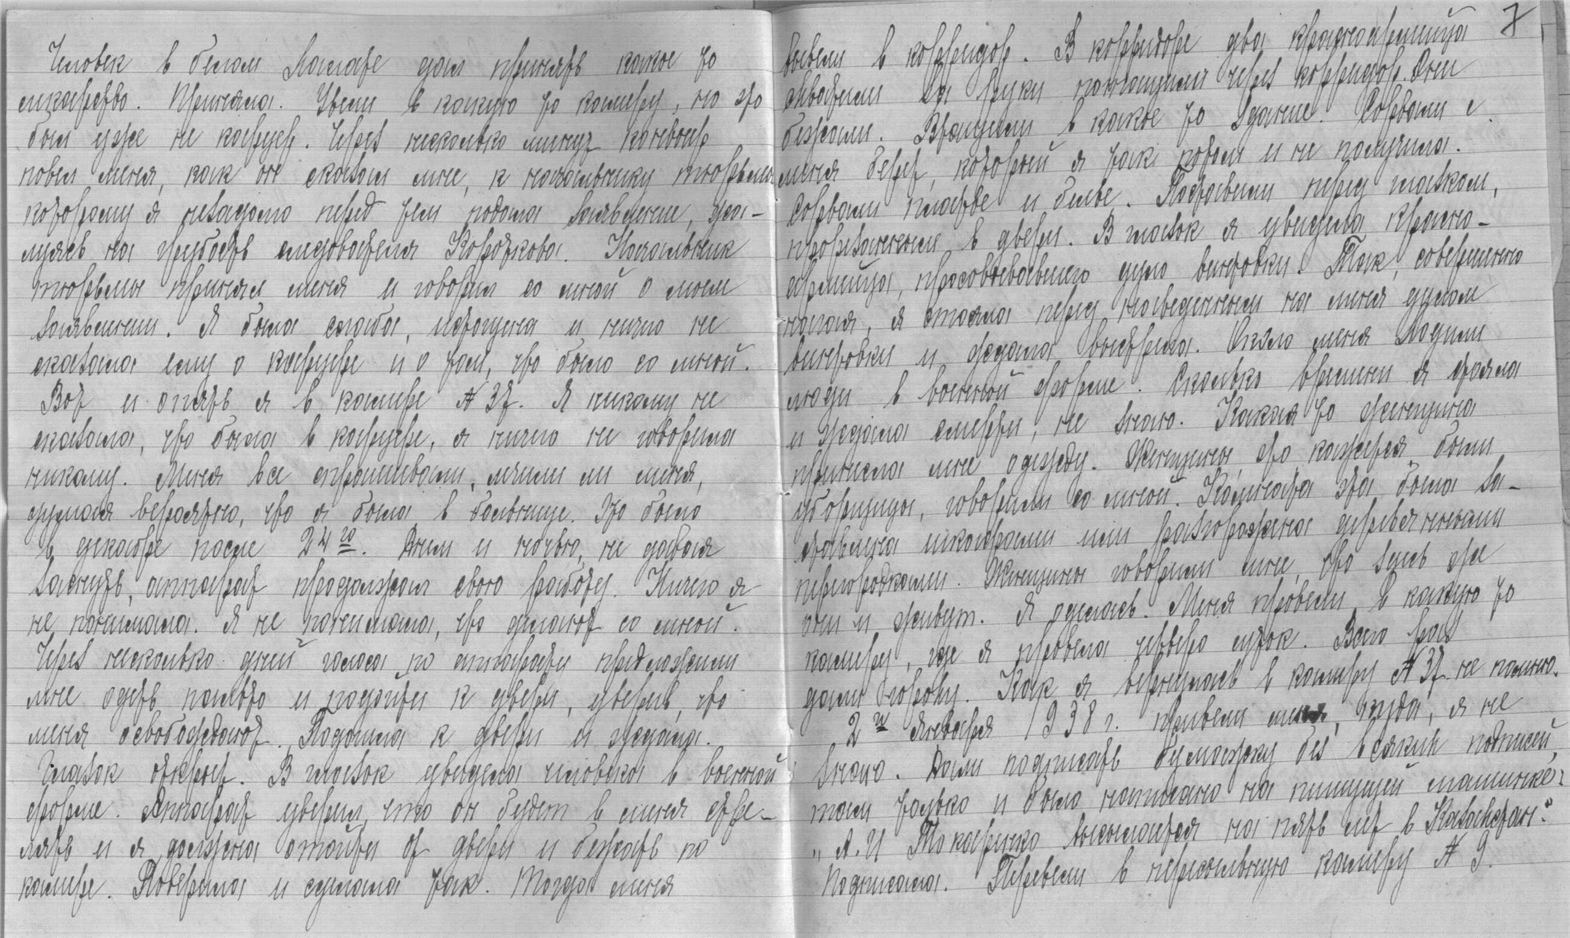 Человек в белом халате дал принять какое то
лекарство. Приняла. Увели в какую то камеру, но это
был уже не карцер. Через несколько минут конвоир
повел меня, как он сказал мне, к начальнику тюрьмы
которому я незадолго перед тем подала заявление, жа-
луясь на грубость следователя Короткова. Начальник
тюрьмы принял меня и говорил со мной о моем
заявлении. Я была слаба, истощена и ничего не
сказала ему о карцере и о том, что было со мной.
Вот и опять я в камере № 37. Я никому не
сказала, что была в карцере, я ничего не говорила
никому. Меня все спрашивали, лечили ли меня,
думая вероятно, что я была в больнице. Это было
в декабре после 24го. Днем и ночью, не давая
заснуть, аппарат продолжал свою работу. Ничего я
не понимала. Я не понимала, что делают со мной.
Через несколько дней голоса по аппарату предложили
мне одеть пальто и подойти к двери, уверив, что
меня освобождают. Подошла к двери и ждала.
Глазок открыт. В глазок увидела человека в военной
форме. Аппарат уверил, что он будет в меня стре-
лять и я должна отойти от двери и бежать по
камере. Поверила и сделала так. Тогда меня
7
вывели в корридор. В корридоре два красноармейца
схватили за руки потащили через корридор. Они
бежали. Втащили в какое то здание. Сорвали с
меня берет, который я так потом и не получила.
Сорвали платье и белье. Поставили перед глазком,
прорезанным в двери. В глазок я увидела красно-
армейца, просовывавшего дуло винтовки. Так, совершенно
нагая, я стояла перед наведенным на меня дулом
винтовки и ждала выстрела. Около меня ходили
люди в военной форме. Сколько времени я стояла
и ждала смерти, не знаю. Какая то женщина
принесла мне одежду. Женщины, это кажется были
уборщицы, говорили со мной. Комната эта была за-
ставлена шкафами или разгорожена деревянными
перегородками. Женщины говорили мне, что здесь же
они и живут. Я оделась. Меня провели в какую то
камеру, где я провела четверо суток. Всего раз
дали горячу. Как я вернулась в камеру № 37 не помню.
2го января 1938 г. привели меня, куда, я не
знаю. Дали подписать бумажку без всяких потией,
там только и было написано на пишущей машинке:
„А. И Токаренко высылается на пять лет в Казахстан."
Подписала. Перевели в пересыльную камеру № 9.